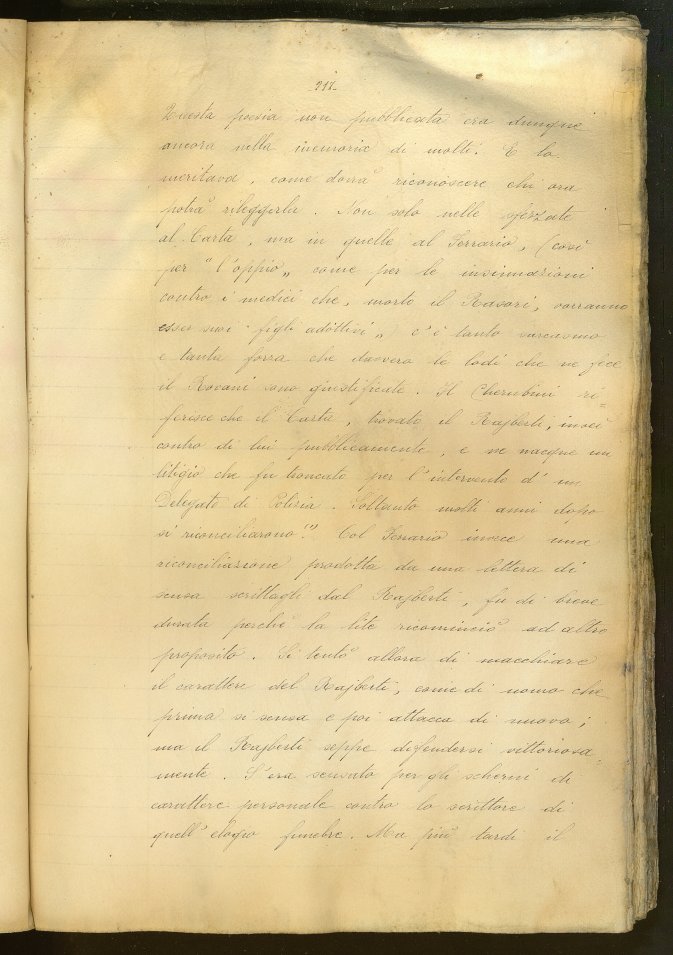 217.
Questa poesia non pubblicata era dunque
ancora nella memoria di molti. E lo
meritava, come dovrà riconoscere chi ora
potrà rileggerla. Non solo nelle sferzate
al Carta, ma in quelle al Ferrario, (così
per "l'oppio„ come per le insinuazioni
contro i medici che, morto il Rasori, vorranno
esser suoi "figli adottivi„) c'è tanto sarcasmo
e tanta forza che davvero le lodi che ne fece
il Rovani sono giustificate. Il Cherubini ri=
ferisce che il Carta, trovato il Rajberti, inveì
contro di lui pubblicamente, e ne nacque un
litigio che fu troncato per l'intervento d'un
Delegato di Polizia. Soltanto molti anni dopo
si riconciliarono. (1) Col Ferrario invece una
riconciliazione prodotta da una lettera di
scusa scrittagli dal Rajberti, fu di breve
durata perchè la lite ricominciò ad altro
proposito. Si tentò allora di macchiare
il carattere del Rajberti, come di uomo che
prima si scusa e poi attacca di nuovo;
ma il Rajberti seppe difendersi vittoriosa-
mente. S'era scusato per gli scherni di
carattere personale contro lo scrittore di
quell'elogio funebre. Ma più tardi il